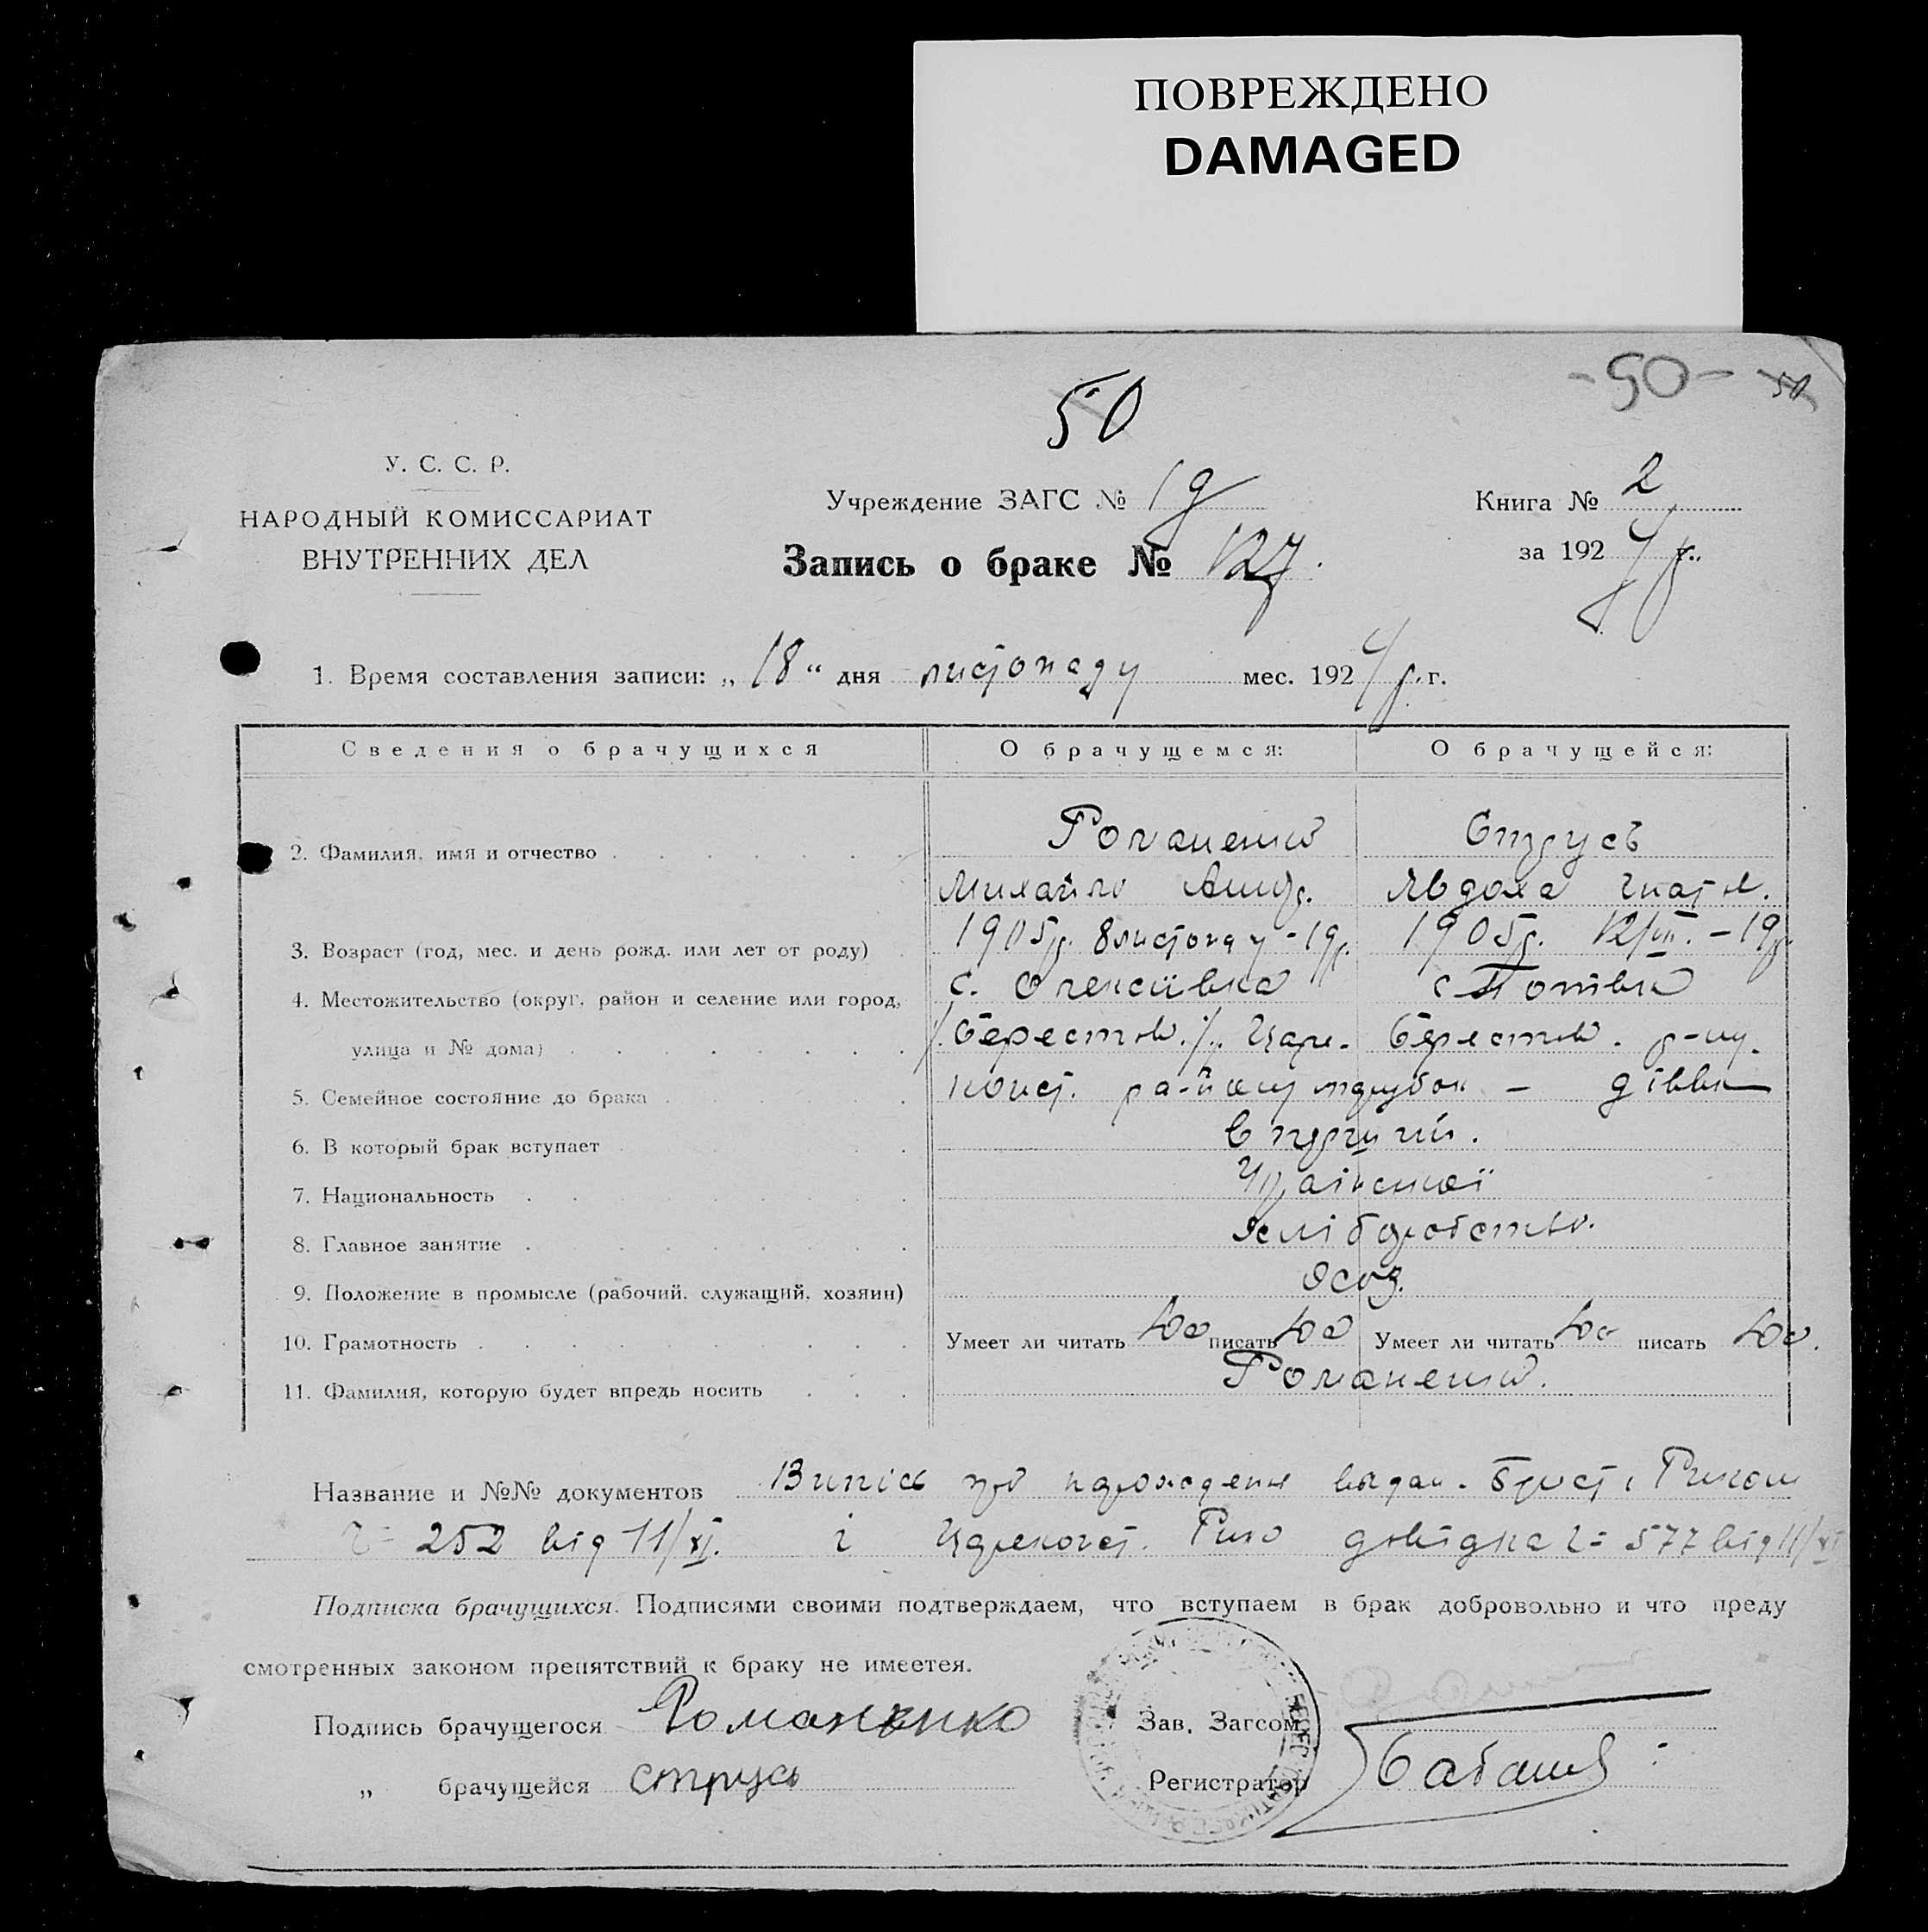 ПОВРЕЖДЕНО
DAMAGED
-50- 50
50
У. С. С. Р.
НАРОДНЫЙ КОМИССАРИАТ
ВНУТРЕННИХ ДЕЛ
Учреждение ЗАГС №
Запись о браке № 127.
Книга № 2
за 1924 г.
1. Время составления записи: „18“ дня листопаду мес. 1924 р. г.
Сведения о брачущихся О брачущемся: О брачущейся:
2. Фамилия, имя и отчество Романенко Струсь
Михайло Андр. Явдоха Гнатов.
3. Возраст (год, мес. и день рожд. или лет от роду) 1905р. 8 листопаду - 19р. 1905р. - 19р.
4. Местожительство (округ, район и селение или город, с. Олексіївка с.
улица и № дома) Берестов. Царе- Берестов. р-ну.
5. Семейное состояние до брака конст. района парубок – дівка
6. В который брак вступает В перший.
7. Национальность Української
8. Главное занятие Хліборобство.
9. Положение в промысле (рабочий, служащий, хозяин)
10. Грамотность Умеет ли читать писать Умеет ли читать писать
11. Фамилия, которую будет впредь носить Романенко.
Название и №№ документов Випісь про народження видан. Риком
ч= 252 від 11/XI. і Царекончт. Рико довідка ч= 577 від 11/XI
Подписка брачущихся. Подписями своими подтверждаем, что вступаем в брак добровольно и что преду
смотренных законом препятствий к браку не имеетея.
Подпись брачущегося Романенко Зав. Загсом
„ брачущейся Струсь Регистратор